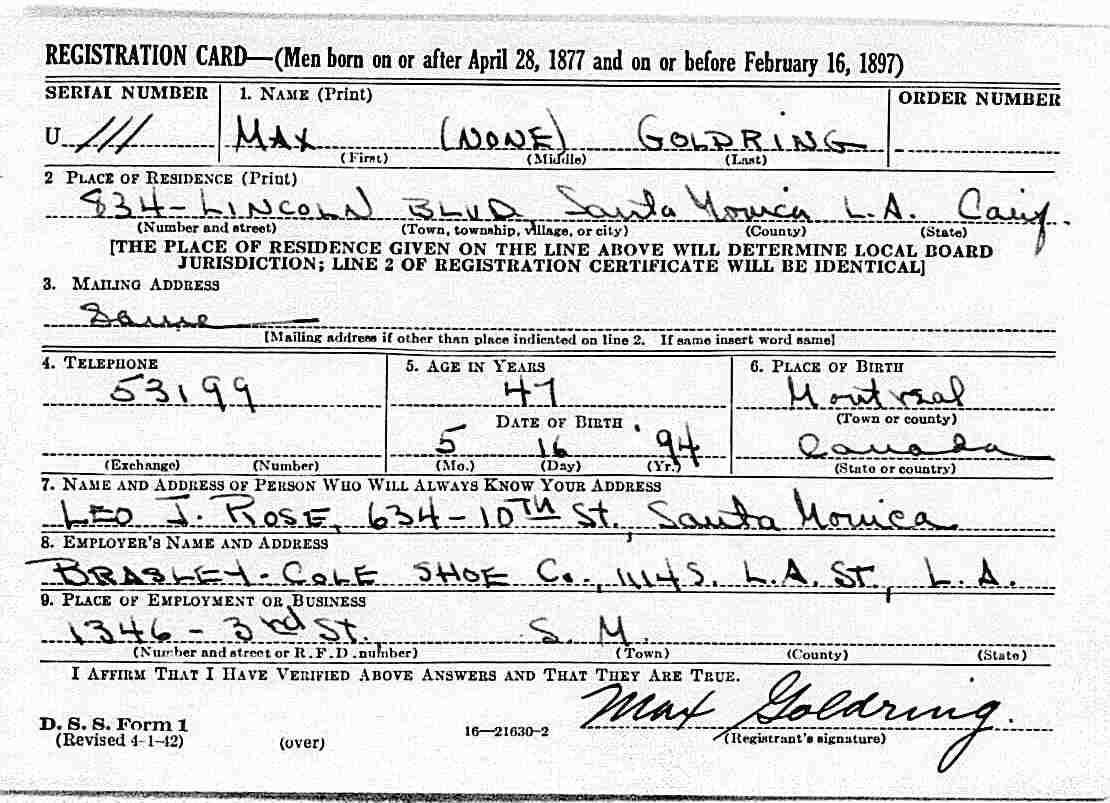 REGISTRATION CARD—(Men born on or after April 28, 1877 and on or before February 16, 1897)
SERIAL NUMBER 1. NAME (Print) ORDER NUMBER
U 111 MAX (NONE) GOLDRING
(First) (Middle) (Last)
2 PLACE OF RESIDENCE (Print)
834-LINCOLN BLVD, Santa Monica L.A. Calif.
(Number and street) (Town, township, village, or city) (County) (State)
[THE PLACE OF RESIDENCE GIVEN ON THE LINE ABOVE WILL DETERMINE LOCAL BOARD
JURISDICTION; LINE 2 OF REGISTRATION CERTIFICATE WILL BE IDENTICAL]
3. MAILING ADDRESS
Same
[Mailing address if other than place indicated on line 2. If same insert word same]
4. TELEPHONE 5. AGE IN YEARS 6. PLACE OF BIRTH
53199 47 Montreal
DATE OF BIRTH (Town or county)
5 16 '94 Canada
(Exchange) (Number) (Mo.) (Day) (Yr.) (State or country)
7. NAME AND ADDRESS OF PERSON WHO WILL ALWAYS KNOW YOUR ADDRESS
LEO J. ROSE, 634-10TH St, Santa Monica
8. EMPLOYER'S NAME AND ADDRESS
BRASLEY-COLE SHOE Co., 1114 S. L.A. ST, L.A.
9. PLACE OF EMPLOYMENT OR BUSINESS
1346 - 3rd St. S. M.
(Number and street or R. F. D. number) (Town) (County) (State)
I AFFIRM THAT I HAVE VERIFIED ABOVE ANSWERS AND THAT THEY ARE TRUE.
Max Goldring.
D. S. S. Form 1
(Revised 4-1-42) (over) 16—21630-2 (Registrant's signature)